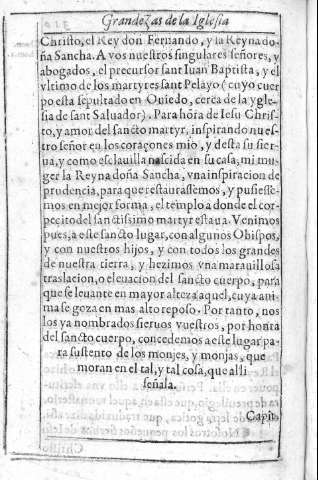 Grandezas de la Iglesia
Christo, el Rey don Fernando, y la Reyna do-
ña Sancha. A vos nuestros singulares señores, y
abogados, el precursor sant Iuan Baptista, y el
vltimo de los martyres sant Pelayo (cuyo cuer
po esta sepultado en Ouiedo, cerca de la ygle-
sia de sant Saluador). Para hõra de Iesu Chris-
to, y amor del sancto martyr, inspirando nues-
tro señor en los coraçones mio, y desta su sier-
ua, y como esclauilla nascida en su casa, mi mu-
ger la Reyna doña Sancha, vna inspiracion de
prudencia, para que restaurassemos, y pusiesse-
mos en mejor forma, el templo a donde el cor-
pezito del sanctissimo martyr estaua. Venimos
pues, a este sancto lugar, con algunos Obispos,
y con nuestros hijos, y con todos los grandes
de nuestra tierra, y hezimos vna marauillosa
traslacion, o eleuacion del sancto cuerpo, para
que se leuante en mayor alteza aquel, cuya ani-
ma se goza en mas alto reposo. Por tanto, nos
los ya nombrados sieruos vuestros, por honra
del sancto cuerpo, concedemos a este lugar pa-
ra sustento de los monjes, y monjas, que
moran en el tal, y tal cosa, que alli
señala.
Capit.